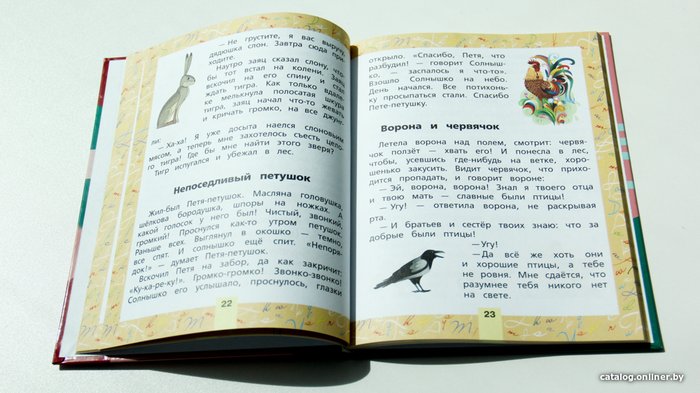 — Не грустите, я вас выручу,
дядюшка слон. Завтра сюда при-
ходите.
Наутро заяц сказал слону, что-
бы тот встал на колени. Заяц
вскочил на его спину и стал
ждать тигра. Как только вдале-
ке мелькнула полосатая шкура
тигра, заяц начал что-то жевать
и кричать громко, на все джунг-
ли:
— Ха-ха! Я уже досыта наелся слоновьим
мясом, а теперь мне захотелось съесть цело-
го тигра! Где бы мне найти этого зверя?
Тигр испугался и убежал в лес.
Непоседливый петушок
Жил-был Петя-петушок. Масляна головушка,
шёлкова бородушка, шпоры на ножках. А
какой голосок у него был! Чистый, звонкий,
громкий! Проснулся как-то утром петушок.
Раньше всех. Выглянул в окошко — темно,
все спят. И солнышко ещё спит. «Непоря-
док!» — думает Петя-петушок.
Вскочил Петя на забор, да как закричит:
«Ку-ка-ре-ку!». Громко-громко! Звонко-звонко!
Солнышко его услышало, проснулось, глазки
22
открыло. «Спасибо, Петя, что
разбудил! — говорит Солныш-
ко, — заспалось я что-то».
Взошло Солнышко на небо.
День начался. Все потихонь-
ку просыпаться стали. Спасибо
Пете-петушку.
Ворона и червячок
Летела ворона над полем, смотрит: червя-
чок ползёт — хвать его! И понесла в лес,
чтобы, усевшись где-нибудь на ветке, хоро-
шенько закусить. Видит червячок, что прихо-
дится пропадать, и говорит вороне:
— Эй, ворона, ворона! Знал я твоего отца
и твою мать — славные были птицы!
— Угу! — ответила ворона, не раскрывая
рта.
— И братьев и сестёр твоих знаю: что за
добрые были птицы!
— Угу!
— Да всё же хоть они
и хорошие птицы, а тебе
не ровня. Мне сдаётся, что
разумнее тебя никого нет
на свете.
23
catalog.onliner.by